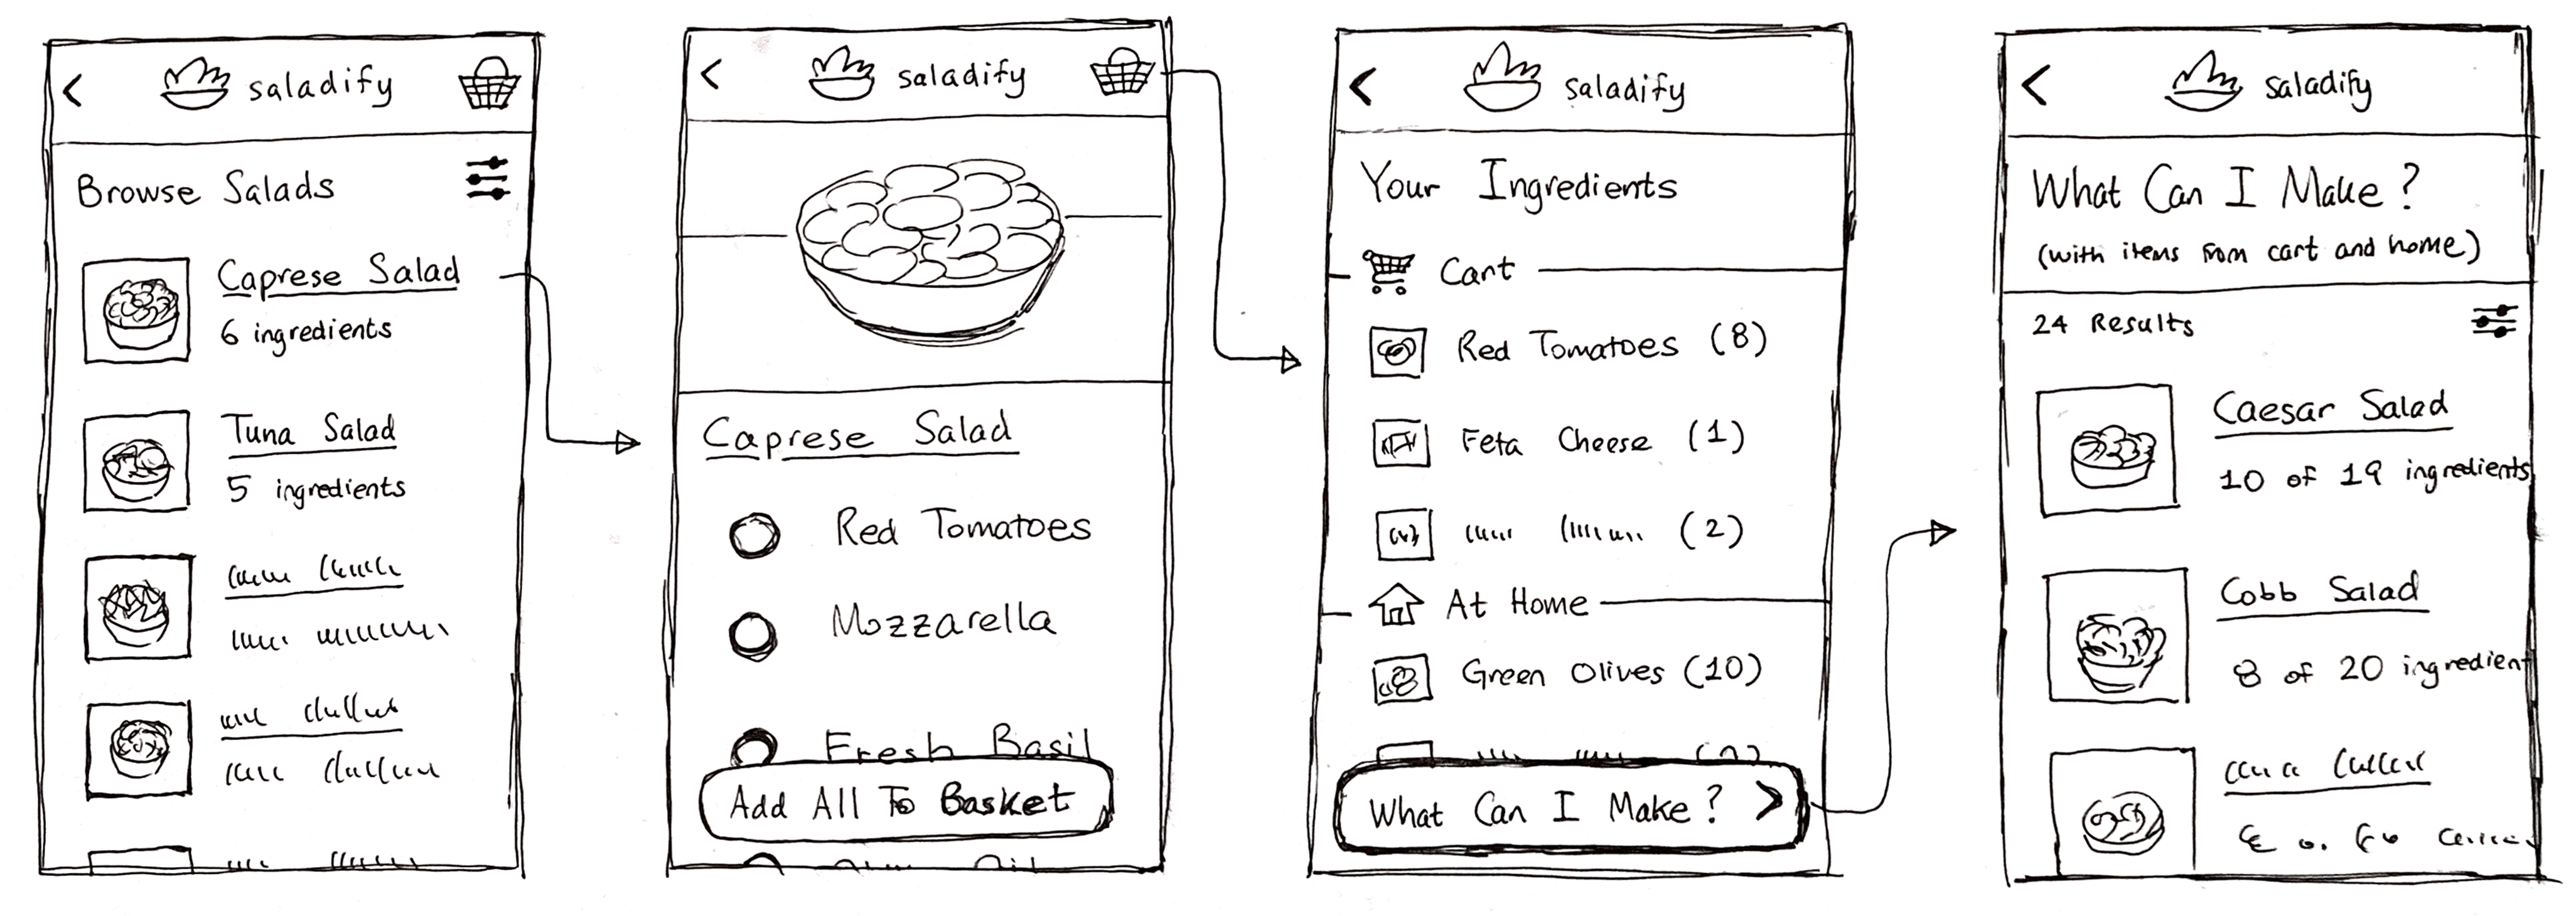 saladify
Browse Salads
Caprese Salad
6 ingredients
Tuna Salad
5 ingredients
saladify
Caprese Salad
Red Tomatoes
Mozzarella
Fresh Basil
Add All To Basket
saladify
Your Ingredients
Cart
Red Tomatoes (8)
Feta Cheese (1)
(2)
At Home
Green Olives (10)
What Can I Make?
saladify
What Can I Make?
(with items from cart and home)
24 Results
Caesar Salad
10 of 19 ingredients
Cobb Salad
8 of 20 ingredient